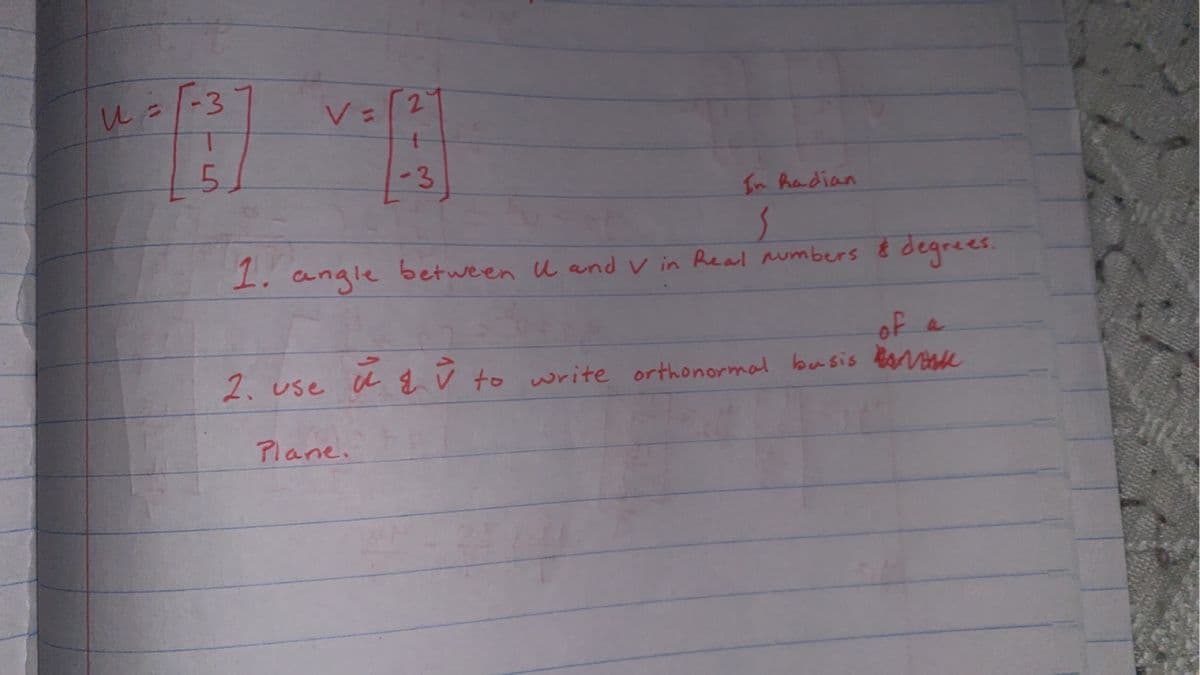 u = [-3 1 5] v = [2 1 -3]
In Radian
1. angle between u and v in Real numbers & degrees.
of a
2. use u & v to write orthonormal basis
Plane.